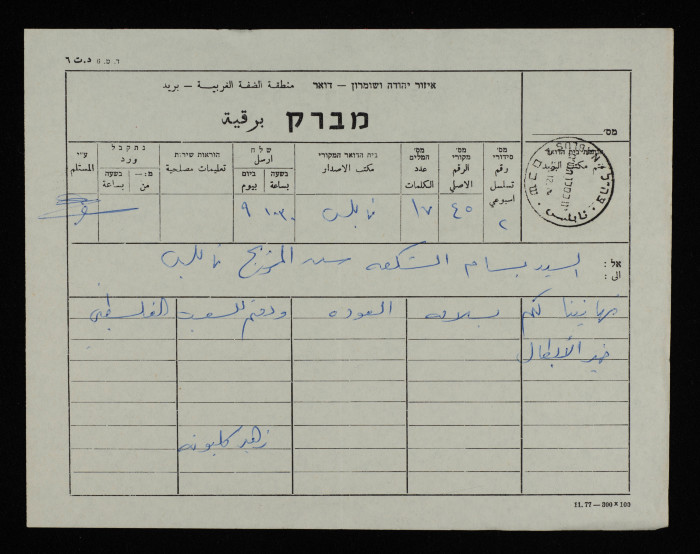 ד. מ. ۵ د.ت ٦
איזור יהודה ושומרון — דואר منطقة الضفة الغربية — بريد
מברק برقية
מס׳
NABLUS
מס׳ סידורי رقم تسلسل اسبوعي ٢
מס׳ מקורי الرقم الاصلي ٤٥
מס׳ המלים عدد الكلمات ١٧
בית הדואר המקורי مكتب الاصدار نابلس
שלח ارسل בשעה بساعة ١٠٣٠ ביום بيوم ٩
הוראות שירות تعليمات مصلحية
נתקבל ورد בשעה بساعة מ:— من
ע״י المستلم
אל: الى: السيد بسام الشكعه نابلس
تهانينا لكم بسلامة العوده ودمتم للشعب الفلسطيني
خير الأبطال
زهير كلبونه
11.77 — 300 × 100